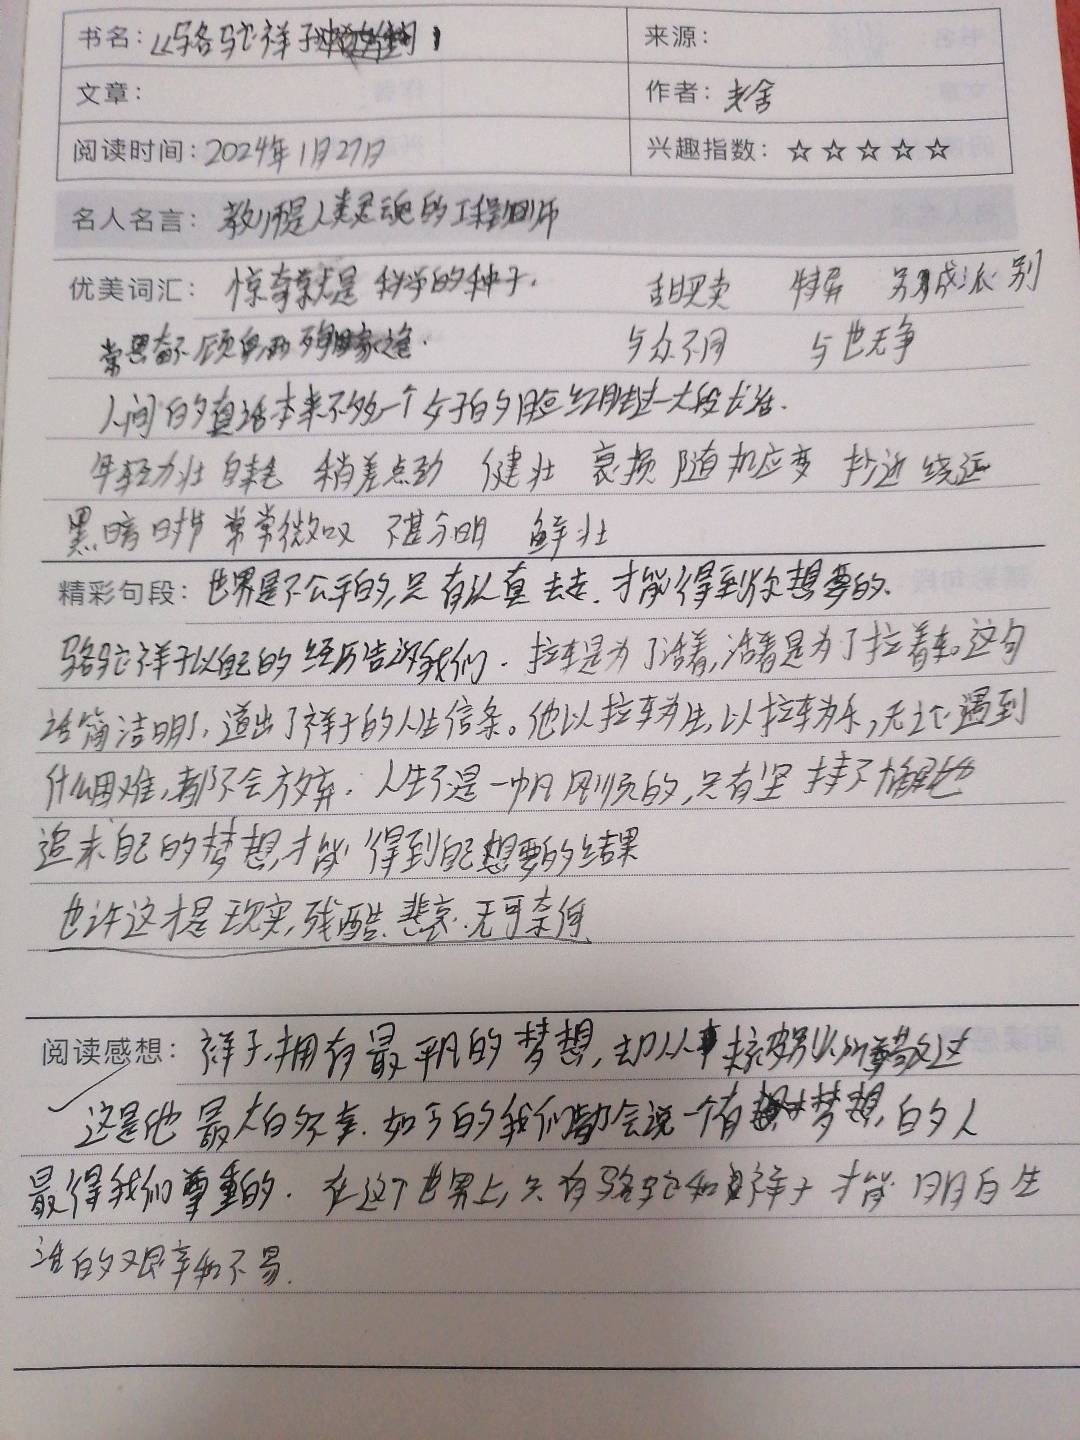 书名：《骆驼祥子
来源：
文章：
作者：老舍
阅读时间：2024年1月27日
兴趣指数：☆☆☆☆☆
名人名言：教师是人类灵魂的工程师
优美词汇：惊奇就是科学的种子. 甜买卖 特异 另成派别
常思奋不顾身,而殉 与众不同 与世无争
人间的真话本来不多,一个女子的脸红胜过一大段长话.
年轻力壮 自耗 稍差点劲 健壮 衰损 随机应变 抄近绕远
黑暗时 常常微叹 不甚分明 鲜壮
精彩句段：世界是不公平的,只有认真去走.才能得到你想要的.
骆驼祥子以自己的经历告诉我们.拉车是为了活着,活着是为了拉着车。这句
话简洁明了,道出了祥子的人生信条。他以拉车为生,以拉车为乐,无论遇到
什么困难,都不会放弃.人生不是一帆风顺的,只有坚持不懈地
追求自己的梦想,才能得到自己想要的结果
也许这才是现实,残酷.悲哀.无可奈何
阅读感想：祥子,拥有最平凡的梦想,却从来
这是他最大的不幸.如今的我们都会说一个有梦想,的人
最得我们尊重的.在这个世界上,只有骆驼和祥子才能明白生
活的艰辛和不易.